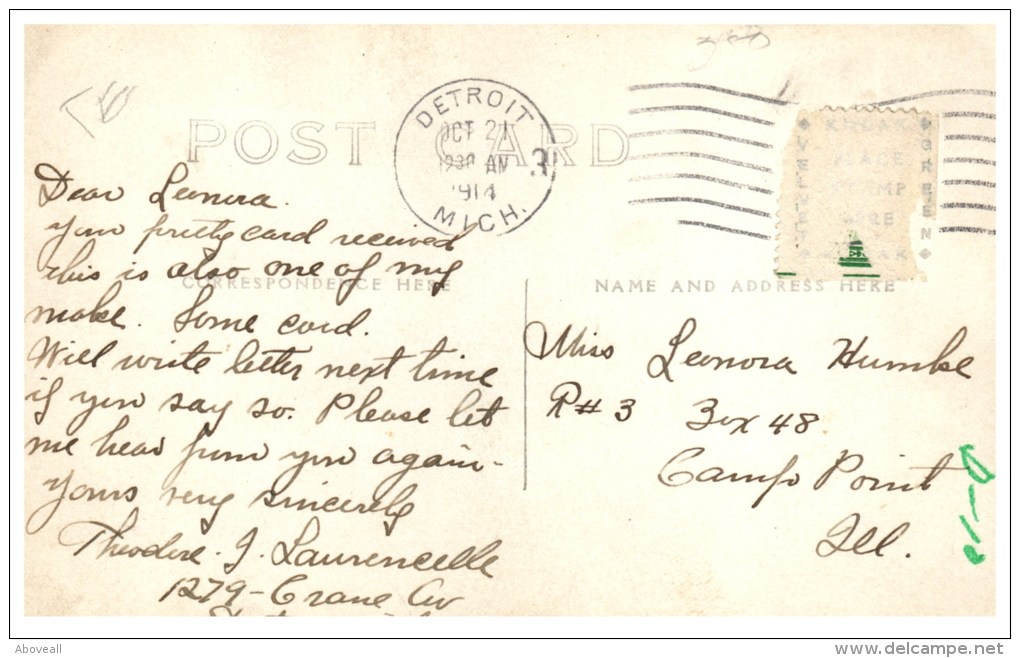 POST CARD
DETROIT
OCT 21
930 AM
1914
MICH.
3
VELVET
GREEN
PLACE
STAMP
HERE
CORRESPONDENCE HERE
NAME AND ADDRESS HERE
Dear Leonora.
Your pretty card received
this is also one of my
make. Some card.
Will write letter next time
if you say so. Please let
me hear from you again-
Yours very sincerely
Theodore. J. Laurencelle
1279-Crane Av
Miss Leonora Humke
R#3 Box 48
Camp Point
Ill.
Aboveall
www.delcampe.net